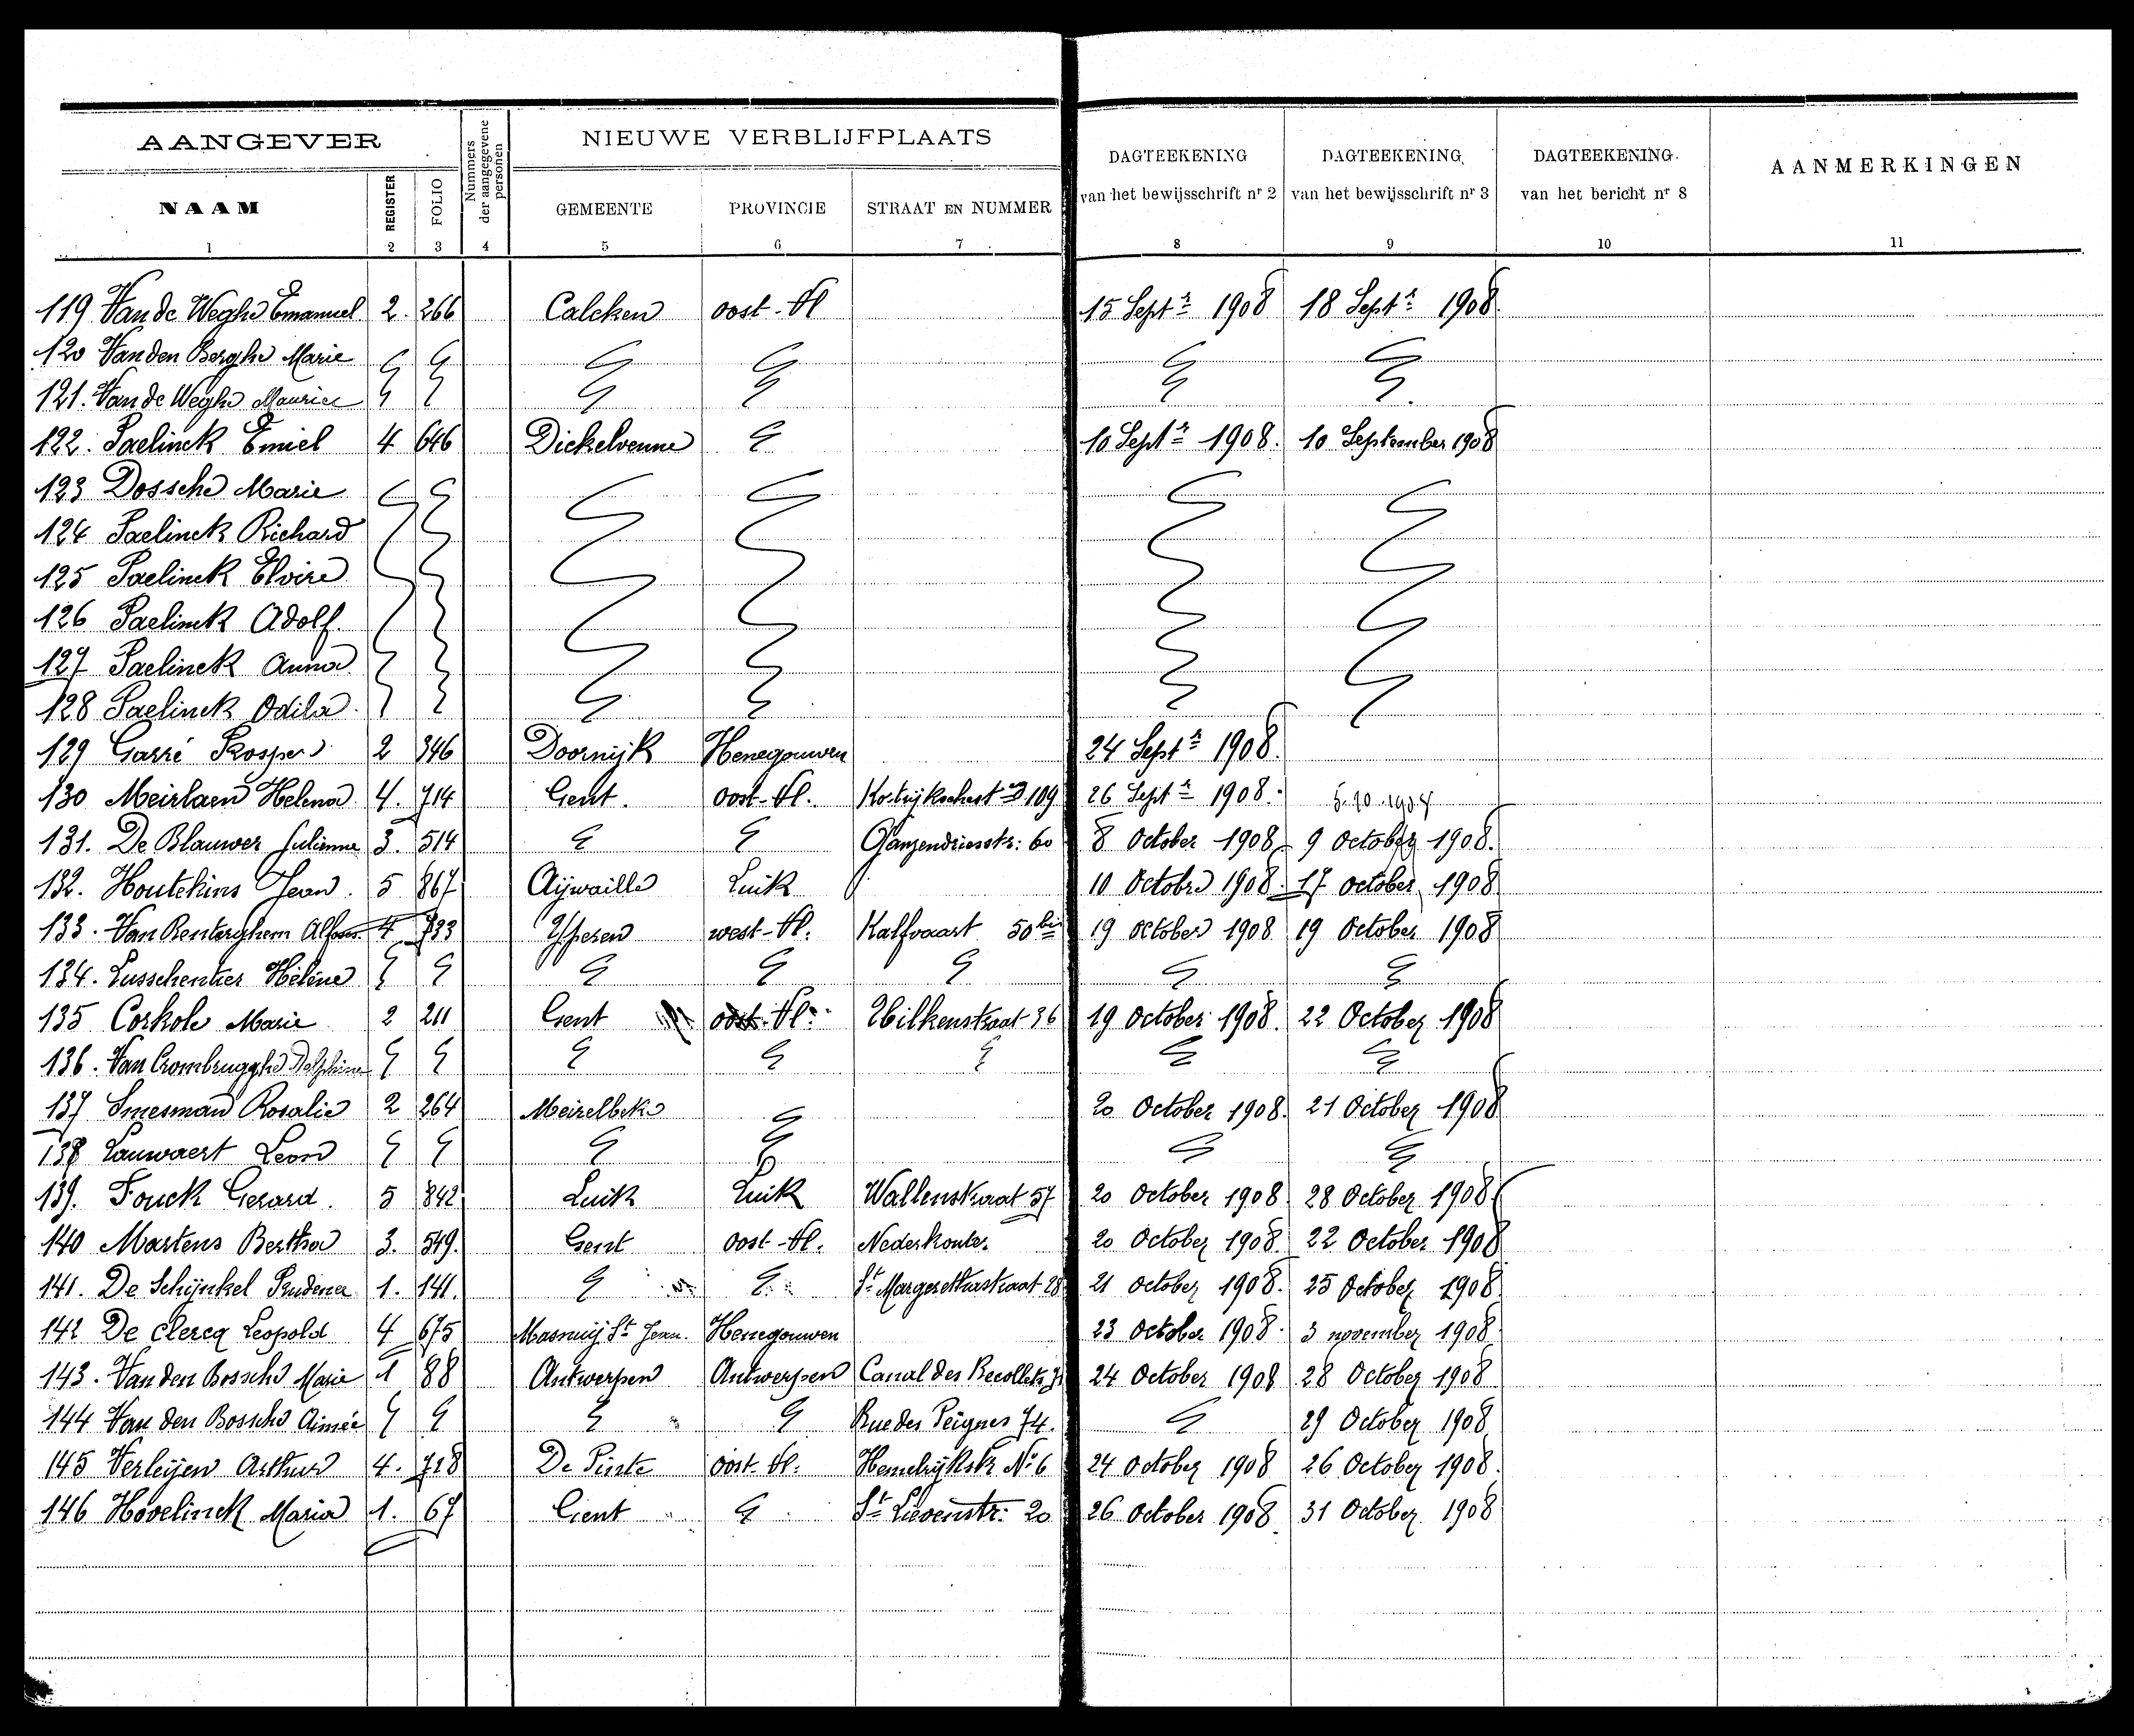 AANGEVER
NIEUWE VERBLIJFPLAATS
NAAM REGISTER FOLIO Nummers der aangegevene personen GEMEENTE PROVINCIE STRAAT EN NUMMER DAGTEEKENING van het bewijsschrift nr 2 DAGTEEKENING van het bewijsschrift nr 3 DAGTEEKENING van het bericht nr 8 AANMERKINGEN
1 2 3 4 5 6 7 8 9 10 11
119 Van de Weghe Emanuel 2. 266 Calcken oost-Vl 15 Septr 1908 18 Septr 1908
120 Van den Berghe Marie
121. Van de Weghe Maurice
122. Paelinck Emiel 4 646 Dickelvenne 10 Septr 1908. 10 September 1908
123 Dossche Marie
124 Paelinck Richard
125 Paelinck Elvire
126 Paelinck Adolf.
127 Paelinck Anna
128 Paelinck Odila.
129 Garré Prosper 2 346 Doornijk Henegouwen 24 Septr 1908.
130 Meirlaen Helena 4. 714 Gent. oost-Vl. 109 26 Septr 1908.
131. De Blauwer Julienne 3. 514 Ganzendriesstr: 60 8 October 1908 9 October 1908.
132. Houtekins Jean. 5 867 Aijwaille Luik 10 Octobre 1908. 17 october 1908
133. Van Renterghem 4 733 Yperen west-Vl. Kalfvaart 50bis 19 October 1908 19 October 1908
134. Lusschentier Hélène
135 Corkole Marie 2 211 Gent oost-Vl. 36 19 October 1908. 22 October 1908
136. Van Crombrugghe Delphine
137 Smesman Rosalie 2 264 Meirelbeke 20 October 1908. 21 October 1908
138 Lauwaert Leon
139. Fouck Gerard. 5 842 Luik Luik Wallenstraat 57 20 October 1908 28 October 1908
140 Martens Bertha 3. 549. Gent oost-Vl. Nederkouter 20 October 1908. 22 October 1908
141. De Schijnkel Prudence 1. 141. St Margerethastraat 28 21 October 1908. 25 October 1908
142 De Clercq Leopold 4 675 Masnuij St Jean. Henegouwen 23 October 1908. 3 november 1908.
143. Van den Bossche Marie 1 88 Antwerpen Antwerpen Canal des Recollets 24 October 1908 28 October 1908
144 Van den Bossche Aimée Rue des Peignes 74. 29 October 1908
145 Verleijen Arthur 4. 728 De Pinte oost-Vl. No 6 24 October 1908 26 October 1908.
146 Hovelinck Maria 1. 67 Gent St Lievenstr: 20 26 October 1908 31 October 1908